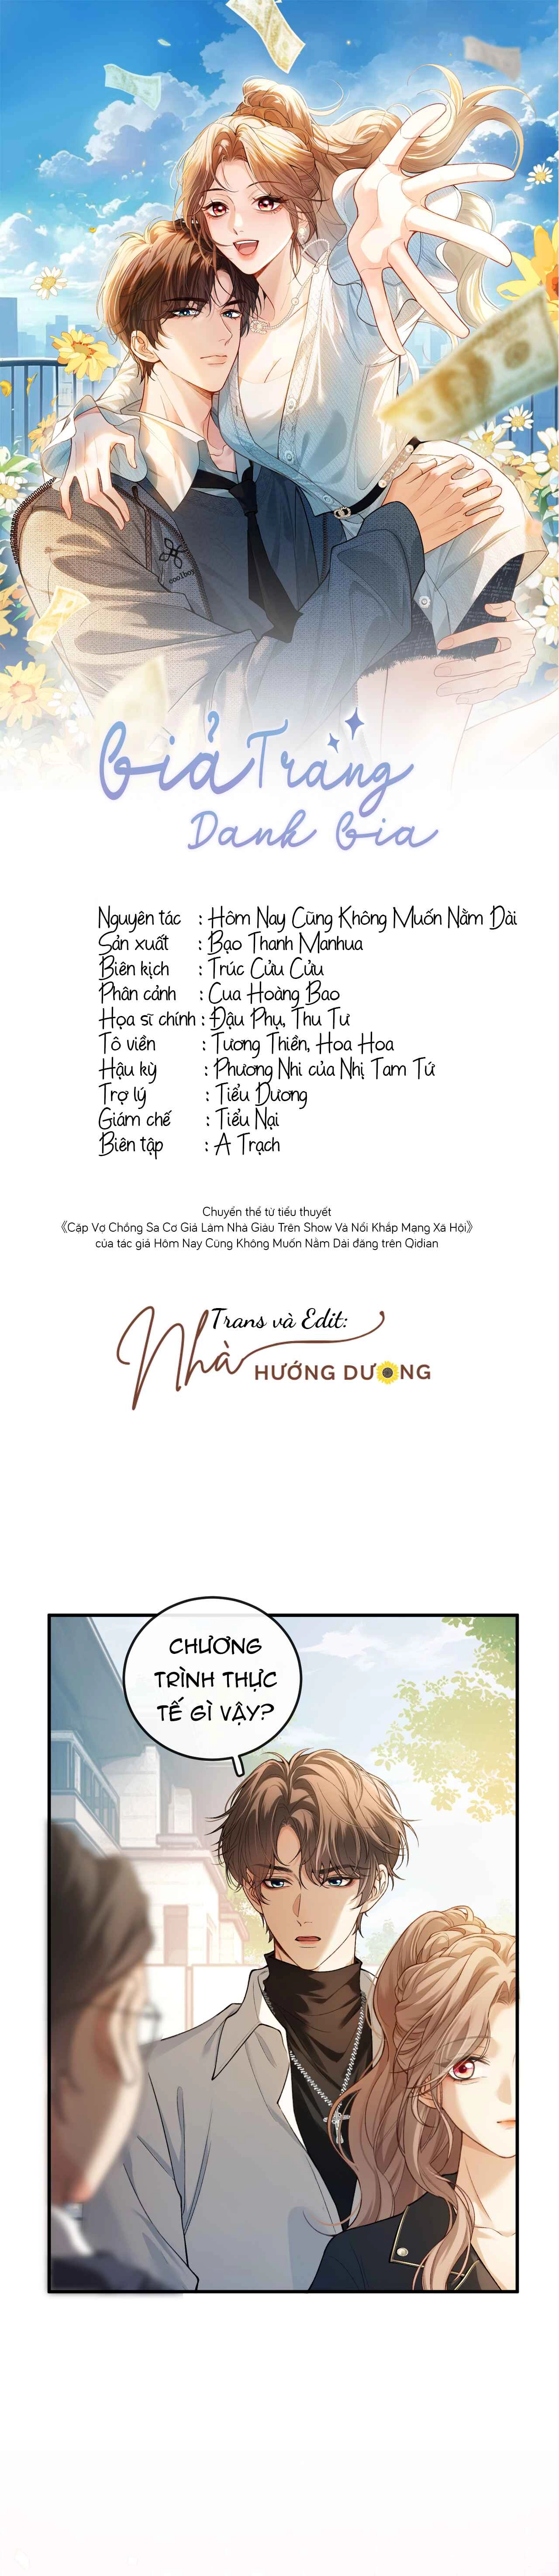 coolboy
Giả Trang
Danh Gia
Nguyên tác : Hôm Nay Cũng Không Muốn Nằm Dài
Sản xuất : Bạo Thanh Manhua
Biên kịch : Trúc Cửu Cửu
Phân cảnh : Cua Hoàng Bao
Họa sĩ chính : Đậu Phụ, Thu Tư
Tô viền : Tương Thiền, Hoa Hoa
Hậu kỳ : Phương Nhi của Nhị Tam Tứ
Trợ lý : Tiểu Dương
Giám chế : Tiểu Nại
Biên tập : A Trạch
Chuyển thể từ tiểu thuyết
《Cặp Vợ Chồng Sa Cơ Giả Làm Nhà Giàu Trên Show Và Nổi Khắp Mạng Xã Hội》
của tác giả Hôm Nay Cũng Không Muốn Nằm Dài đăng trên Qidian
Trans và Edit:
Nhà HƯỚNG DƯƠNG
CHƯƠNG
TRÌNH THỰC
TẾ GÌ VẬY?